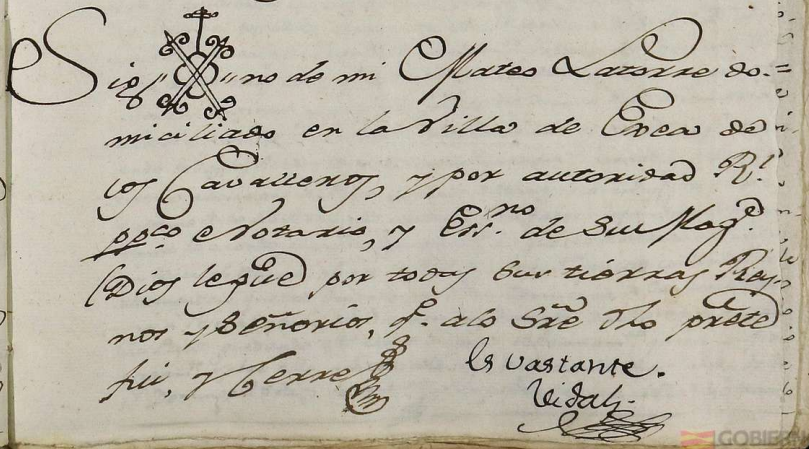 Sig no de mi Mateo Latorre do-
miciliado en la Villa de Exea de
los Cavalleros, y por autoridad Rl.
ppco Notario, y Essno. de Su Magd.
(Dios le gûe) por todas sus tierras Rey-
nos y Señorios, q.e a lo Sre dho prête
fui, y Cerre
Es vastante.
Vidal.
GOBIERN